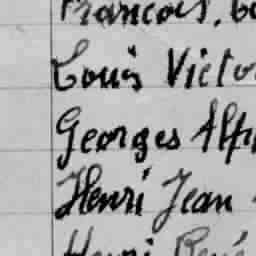 François,
Louis Victo
Georges Alp
Henri Jean
Henri René